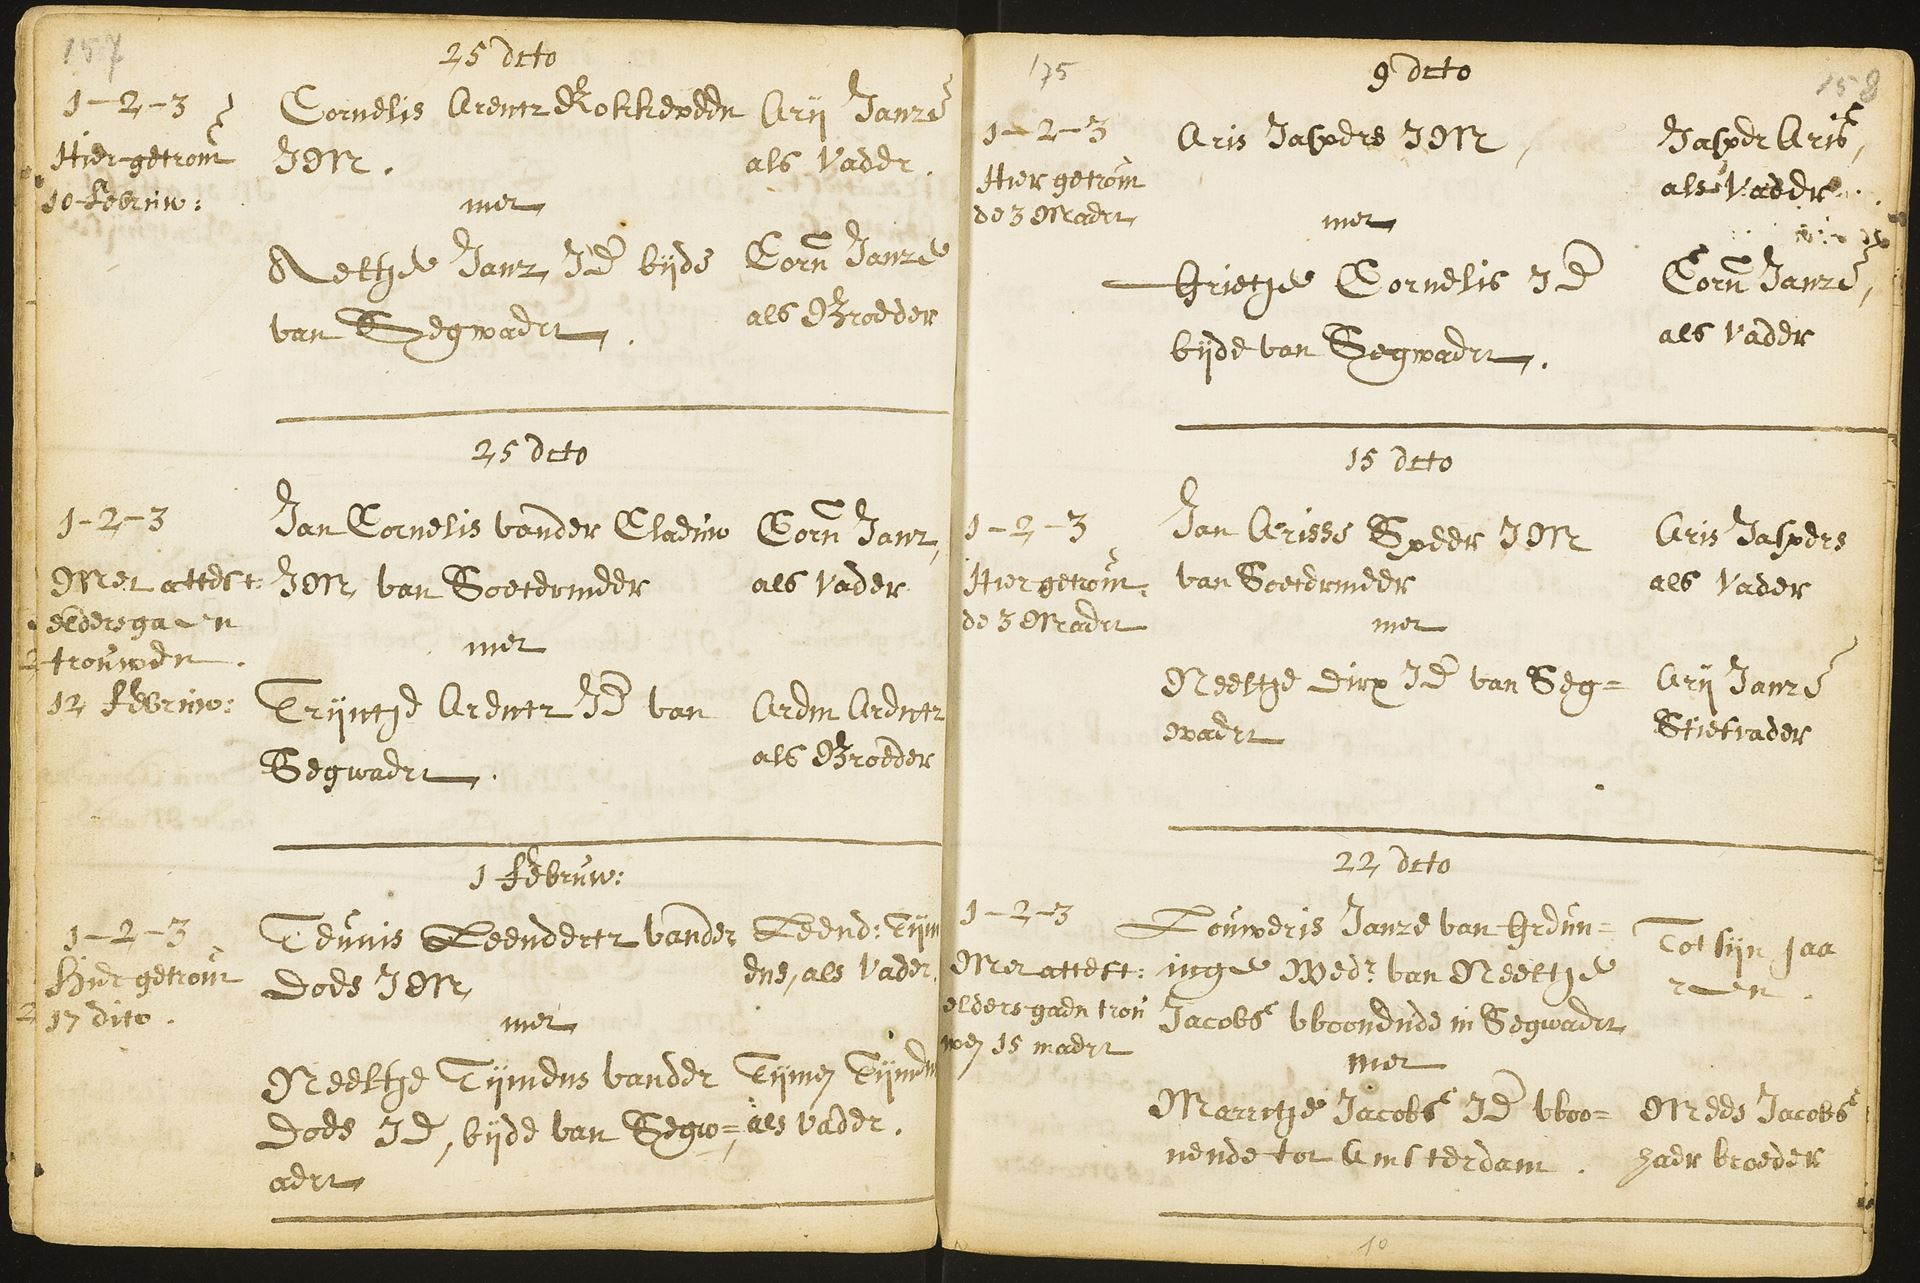 157
25 dito
1-2-3
Hier getrout
10 Februw:
Cornelis Arentz Rokkeveen
JM.
met
Neeltje Janz JD bijde
van Segwaert.
Arij Janze
als Vader.
Corn Janze
als Broeder
25 dito
1-2-3
Met attest:
elders gaen
trouwen.
12 Februw:
Jan Cornelis vander Claeuw
JM van Soetermeer
met
Trijntje Arentz JD van
Segwaert.
Corn Janz,
als Vader
Aren Arentz
als Broeder
1 Februw:
1-2-3
Hier getrout
17 dito.
Teunis Leendertz vander
Does JM
met
Neeltje Tijmens vander
Does JD, bijde van Segw=
aert
Leend: Tijm
ens, als Vader.
Tijmen Tijmen
als Vader.
175
158
9 dito
1-2-3
Hier getrout
de 3 Maert
Aris Jaspers JM,
met
Grietje Cornelis JD
bijde van Segwaert.
Jasper Aris,
als Vader.
Corn Janze,
als Vader
15 dito
1-2-3
Hier getrout
de 3 Maert
Jan Arisse Speer JM
van Soetermeer
met
Neeltje Dirx JD van Seg=
waert
Aris Jaspers
als Vader
Arij Janze
Stiefvader
22 dito
1-2-3
Met attest:
elders gaen trou
wen 15 maert
Louweris Janze van Greun=
inge Wedr van Neeltje
Jacobs vboonende in Segwaert
met
Marritje Jacobs JD vboo=
nende tot Amsterdam.
Tot sijn jaa
ren.
Mees Jacobs
haer broeder
10